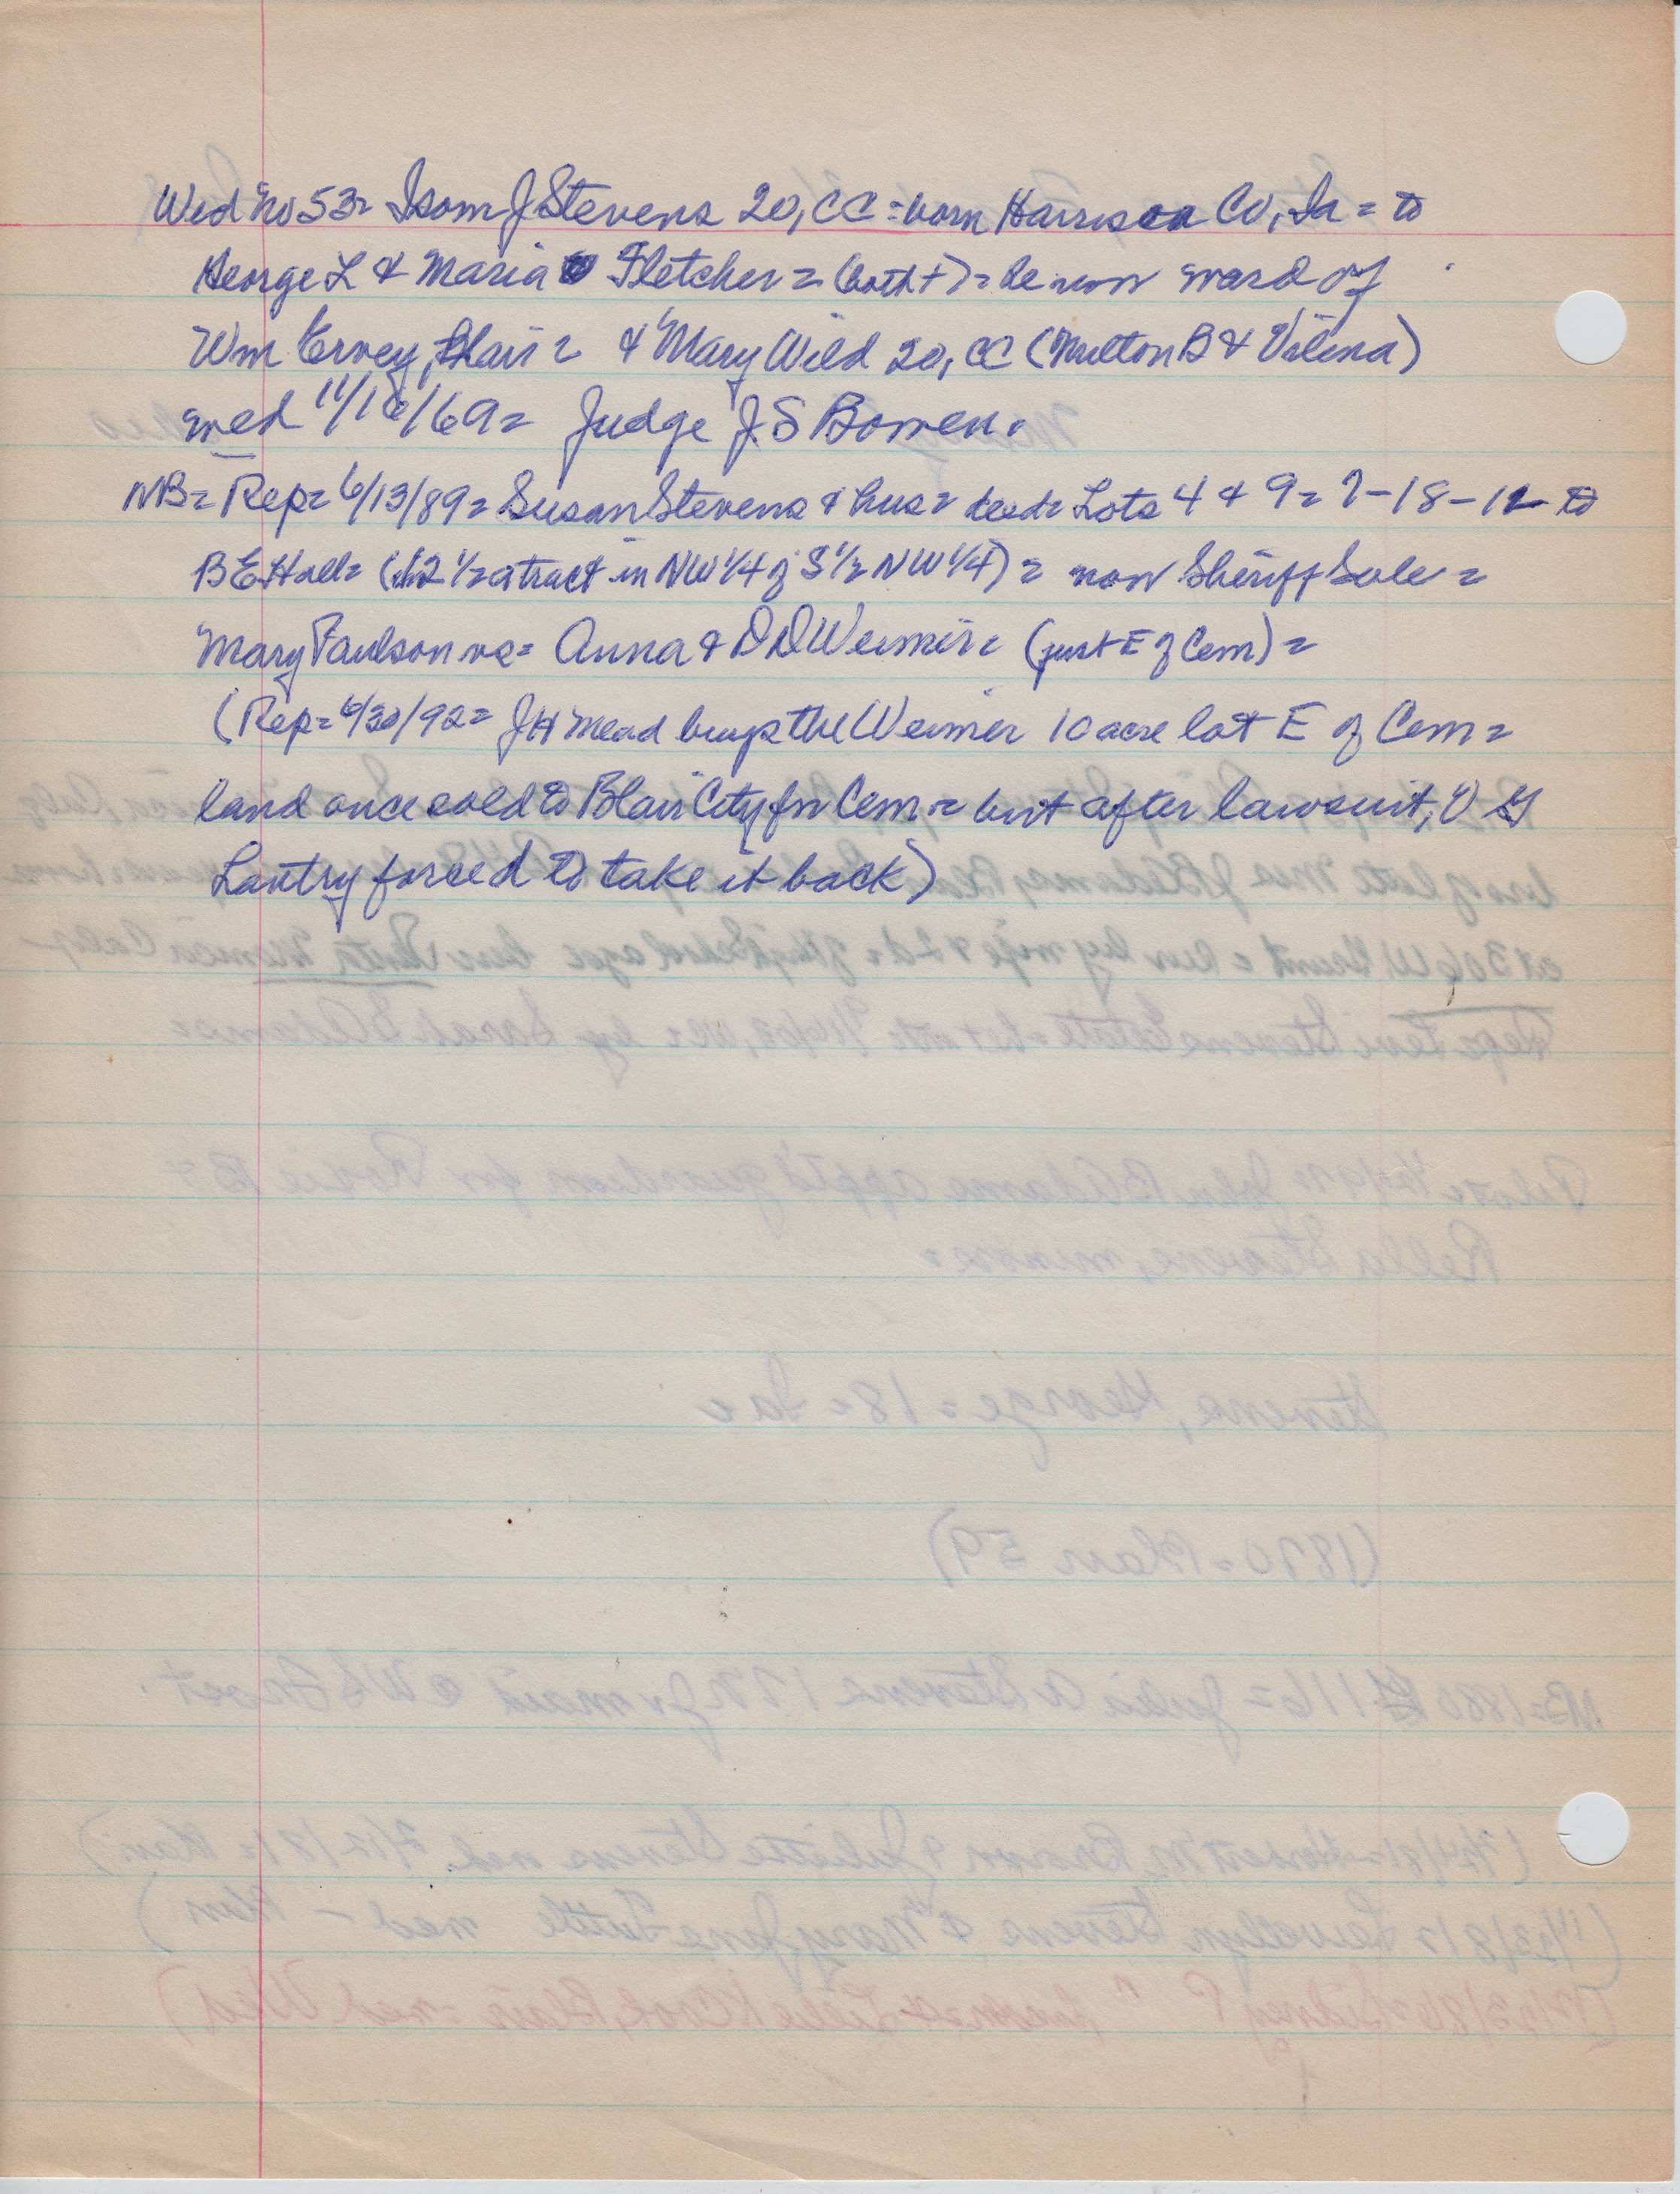 Wed No 53= Isom J Stevens 20, CC = born Harrison Co, Ia = to
George L & Maria Fletcher = (both +) = he now ward of
Wm Ervey, Blair = & Mary Wild 20, CC (Milton B & Vilena)
wed 11/18/69= Judge J. S Bowen.
NB= Rep= 6/13/89= Susan Stevens & hus= deed= Lots 4 & 9= 7-18-12 to
B E Hall= (12 1/2 a tract in NW 1/4 of S 1/2 NW 1/4) = now Sheriff Sale =
Mary Paulson vs= Anna & D D Weimer= (just E of Cem) =
(Rep= 6/30/92= J H Mead buys the Weimer 10 acre lot E of Cem=
land once sold to Blair City for Cem = but after lawsuit, V G
Lantry forced to take it back)